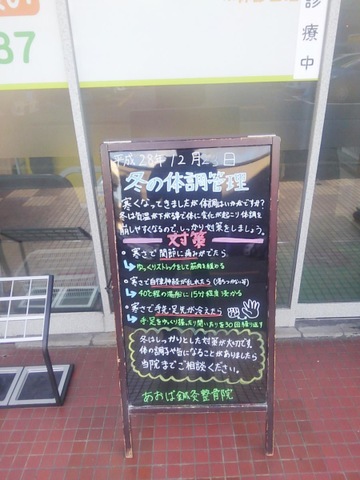 87
診療中
平成28年12月23日
冬の体調管理
寒くなってきましたが体調はいかがですか?
冬は気温が下がる事で体に変化が起こり体調を
崩しやすくなるので、しっかり対策をしましょう。
対策
・寒さで関節に痛みがでたら
→ゆっくりストレッチをして筋肉を緩める
・寒さで自律神経が乱れたら
→40℃程の湯船に15分程度浸かる
・寒さで手先・足先が冷えたら
→手・足をゆっくり握ったり開いたりを30回繰り返す
冬はしっかりとした対策が大切です
体の調子や気になることがありましたら
当院までご相談ください。
あおば鍼灸整骨院